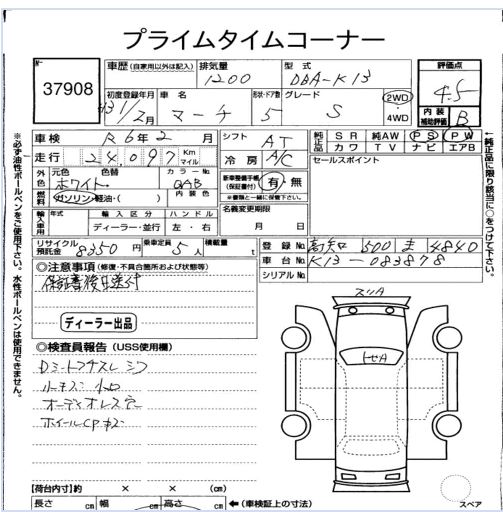 プライムタイムコーナー
No.
37908
車歴(自家用以外は記入)
排気量
1200
型式
DBA-K13
評価点
4.5
初度登録年月
H31/2月
車名
マーチ
形状・ドア数
5
グレード
S
2WD
4WD
内装補助評価
B
車検 R6年2月
走行 24,097 Km マイル
シフト AT
冷房 A/C
純正品 SR 純AW PS PW
カワ TV ナビ エアB
セールスポイント
外色 元色 色替 カラーNo.
ホワイト QAB
内装色
燃料 ガソリン・軽油・( )
新車整備手帳(保証書付) 有・無
※書類と一緒に保管下さい。
輸入車用 年式 輸入区分 ハンドル
ディーラー・並行 左・右
名義変更期限
月 日
リサイクル預託金 8350円 乗車定員 5人 積載量 t
登録No. 高知 500 ま 4840
車台No. K13-083878
シリアルNo.
◎注意事項(修復・不具合箇所および状態等)
保証書後日送付
ディーラー出品
◎検査員報告(USS使用欄)
シワ
オーディオレス
ホイールCP
スリA
トセA
スペア
【荷台内寸】約 × × (cm)
長さ cm 幅 cm 高さ cm ←(車検証上の寸法)
※必ず油性ボールペンをご使用下さい。水性ボールペンは使用できません。
←純正品に限り該当に○をつけて下さい。